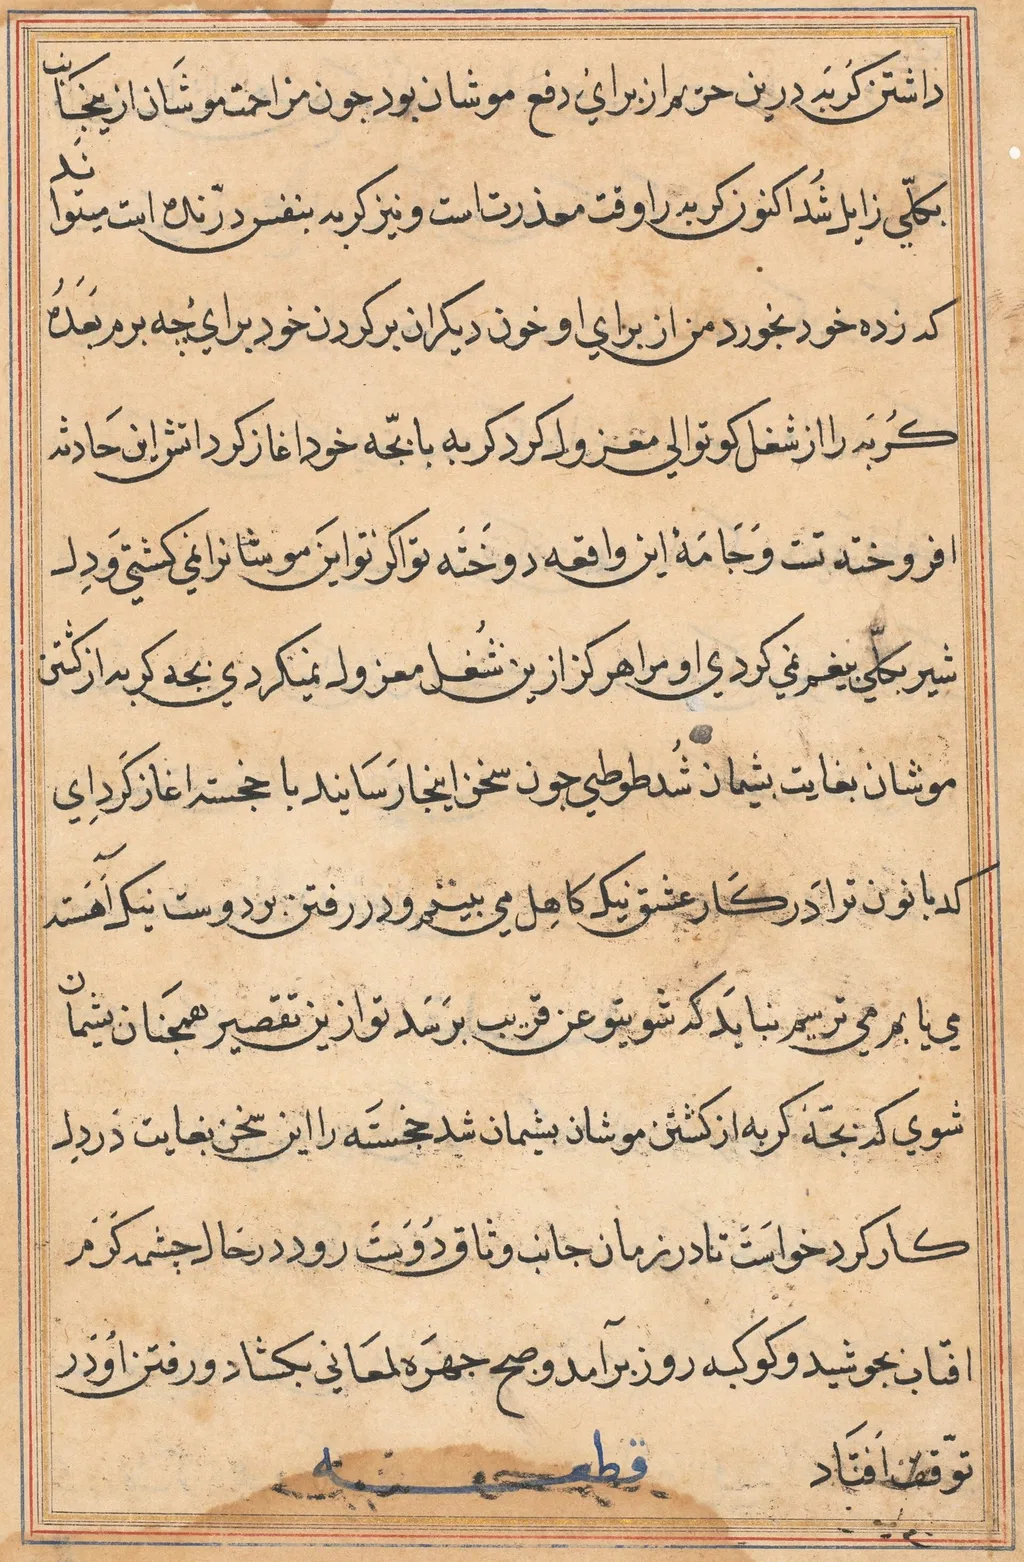 داشتن کَربَه درین حریم از برایٔ دفع موشان بود جون مزاحمت موشَان از ینجَانب
بکلّی زایل شُد اکنون کربه را وقت معذرت است و نیز کربه بنفس درّنده است میتواند
که زده خود نخورد من از برای او خون دیکران بر کردن خود برایٔ چه برم بَعَدَهُ
کُربَه را از شغل کوتوالی معزول کرد کربه با بچّه خود اغاز کرد اتش این حَادثه
افروخته تست وَجَامَهٔ این واقعه دوخَتَه تو اکر تو این موشانرا نمی کشتی وَدِل
شیر بکلّی بیغم نمی کردی او مرا هرکز ازین شُغل معزول نمیکردی بجه کربه از کشتن
موشان بغایت بشیمان شُد طوطی جون سخن اینجا رسَانید با خجسته اغاز کَرد اِی
کدبانون ترا دَر کَار عشق نیک کاهِل می بینم و در رفتن بر دوست نیک آهَسته
می یابم می ترسم نبایَد که شویتو عن قریب برَسَد تو ازین تقصیر همجنَان بشیمان
شوی که بجّهٔ کربه از کشتن موشان بشیمان شد خجستَه را این سخن بغایت دَر دل
کار کرد خواسَت تا در زمان جانب وثاق دُوسَت رود در حَال چشمه کَرَم
افتاب بجوشید و کوکبه روز برآمد و صبح جهرَه لمعَانی بکشاد و رفتن اُو دَر
توّقف اَفتَاد قطعه